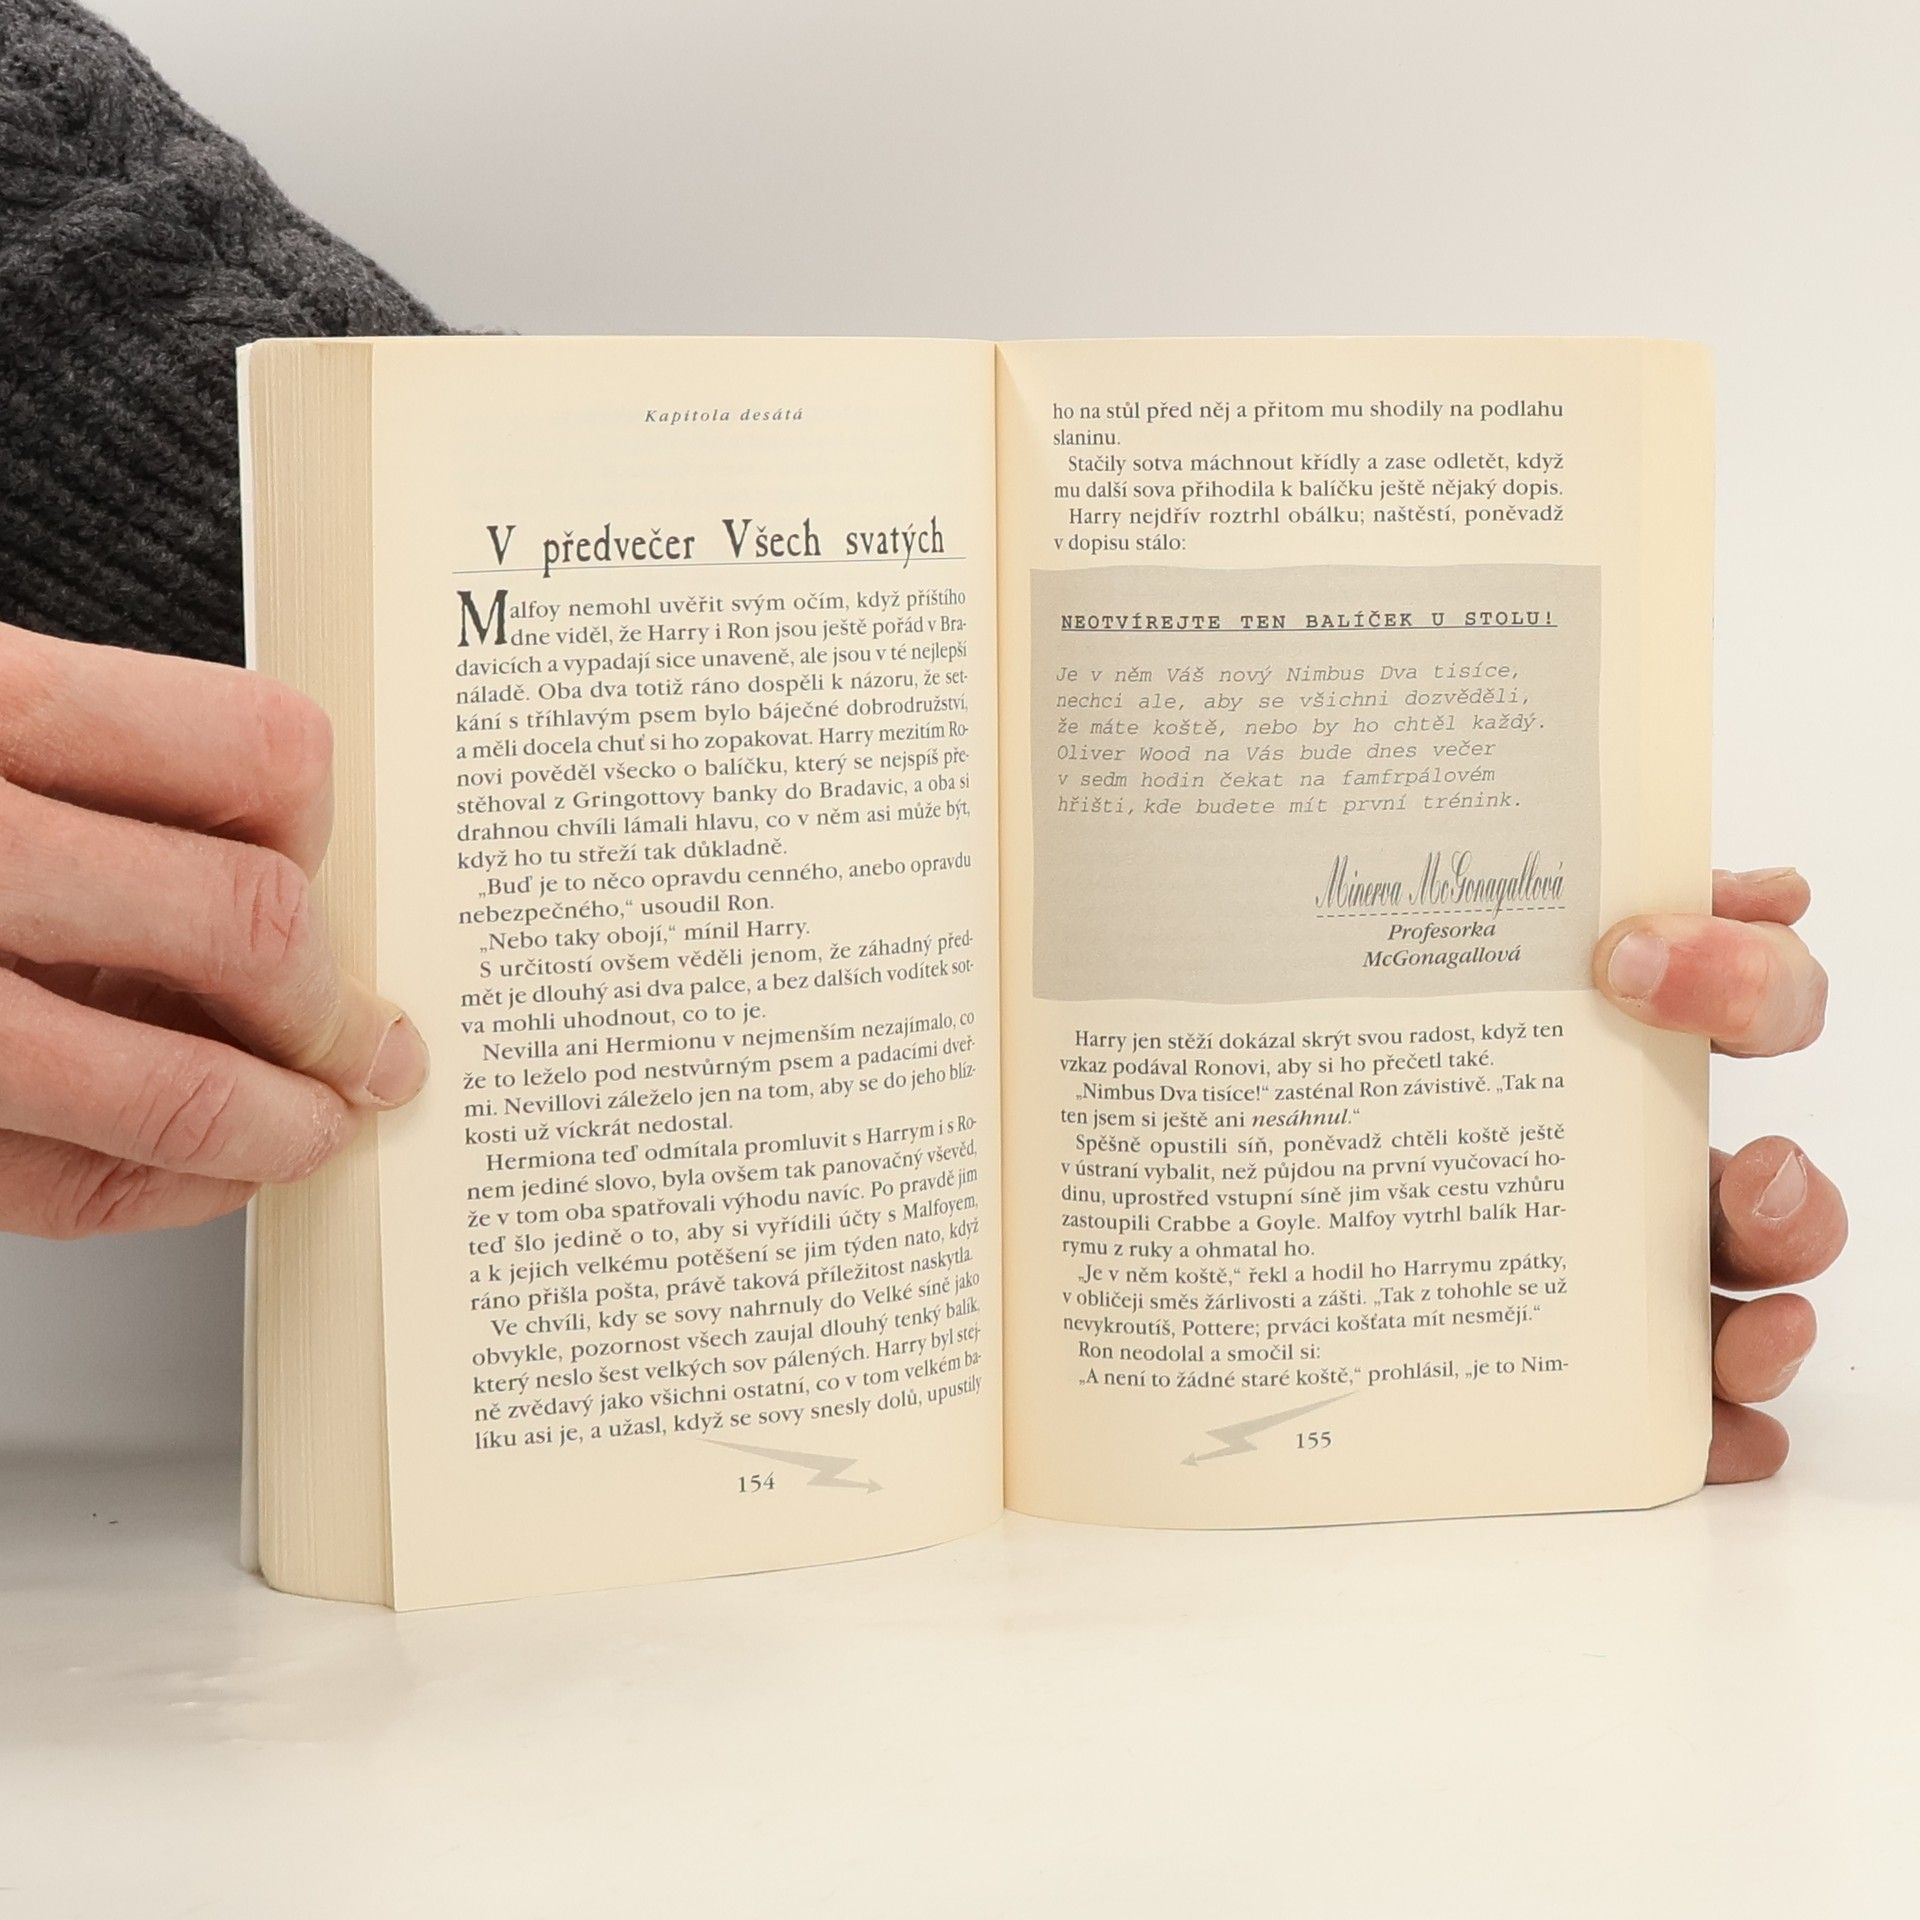 Kapitola desátá
V předvečer Všech svatých
Malfoy nemohl uvěřit svým očím, když příštího
dne viděl, že Harry i Ron jsou ještě pořád v Bra-
davicích a vypadají sice unaveně, ale jsou v té nejlepší
náladě. Oba dva totiž ráno dospěli k názoru, že set-
kání s tříhlavým psem bylo báječné dobrodružství,
a měli docela chuť si ho zopakovat. Harry mezitím Ro-
novi pověděl všecko o balíčku, který se nejspíš pře-
stěhoval z Gringottovy banky do Bradavic, a oba si
drahnou chvíli lámali hlavu, co v něm asi může být,
když ho tu střeží tak důkladně.
„Buď je to něco opravdu cenného, anebo opravdu
nebezpečného,“ usoudil Ron.
„Nebo taky obojí,“ mínil Harry.
S určitostí ovšem věděli jenom, že záhadný před-
mět je dlouhý asi dva palce, a bez dalších vodítek sot-
va mohli uhodnout, co to je.
Nevilla ani Hermionu v nejmenším nezajímalo, co
že to leželo pod nestvůrným psem a padacími dveř-
mi. Nevillovi záleželo jen na tom, aby se do jeho blíz-
kosti už víckrát nedostal.
Hermiona teď odmítala promluvit s Harrym i s Ro-
nem jediné slovo, byla ovšem tak panovačný vševěd,
že v tom oba spatřovali výhodu navíc. Po pravdě jim
teď šlo jedině o to, aby si vyřídili účty s Malfoyem,
a k jejich velkému potěšení se jim týden nato, když
ráno přišla pošta, právě taková příležitost naskytla.
Ve chvíli, kdy se sovy nahrnuly do Velké síně jako
obvykle, pozornost všech zaujal dlouhý tenký balík,
který neslo šest velkých sov pálených. Harry byl stej-
ně zvědavý jako všichni ostatní, co v tom velkém ba-
líku asi je, a užasl, když se sovy snesly dolů, upustily
154
ho na stůl před něj a přitom mu shodily na podlahu
slaninu.
Stačily sotva máchnout křídly a zase odletět, když
mu další sova přihodila k balíčku ještě nějaký dopis.
Harry nejdřív roztrhl obálku; naštěstí, poněvadž
v dopisu stálo:
NEOTVÍREJTE TEN BALÍČEK U STOLU!
Je v něm Váš nový Nimbus Dva tisíce,
nechci ale, aby se všichni dozvěděli,
že máte koště, nebo by ho chtěl každý.
Oliver Wood na Vás bude dnes večer
v sedm hodin čekat na famfrpálovém
hřišti, kde budete mít první trénink.
Minerva McGonagallová
Profesorka
McGonagallová
Harry jen stěží dokázal skrýt svou radost, když ten
vzkaz podával Ronovi, aby si ho přečetl také.
„Nimbus Dva tisíce!“ zasténal Ron závistivě. „Tak na
ten jsem si ještě ani nesáhnul.“
Spěšně opustili síň, poněvadž chtěli koště ještě
v ústraní vybalit, než půjdou na první vyučovací ho-
dinu, uprostřed vstupní síně jim však cestu vzhůru
zastoupili Crabbe a Goyle. Malfoy vytrhl balík Har-
rymu z ruky a ohmatal ho.
„Je v něm koště,“ řekl a hodil ho Harrymu zpátky,
v obličeji směs žárlivosti a zášti. „Tak z tohohle se už
nevykroutíš, Pottere; prváci košťata mít nesmějí.“
Ron neodolal a smočil si:
„A není to žádné staré koště,“ prohlásil, „je to Nim-
155